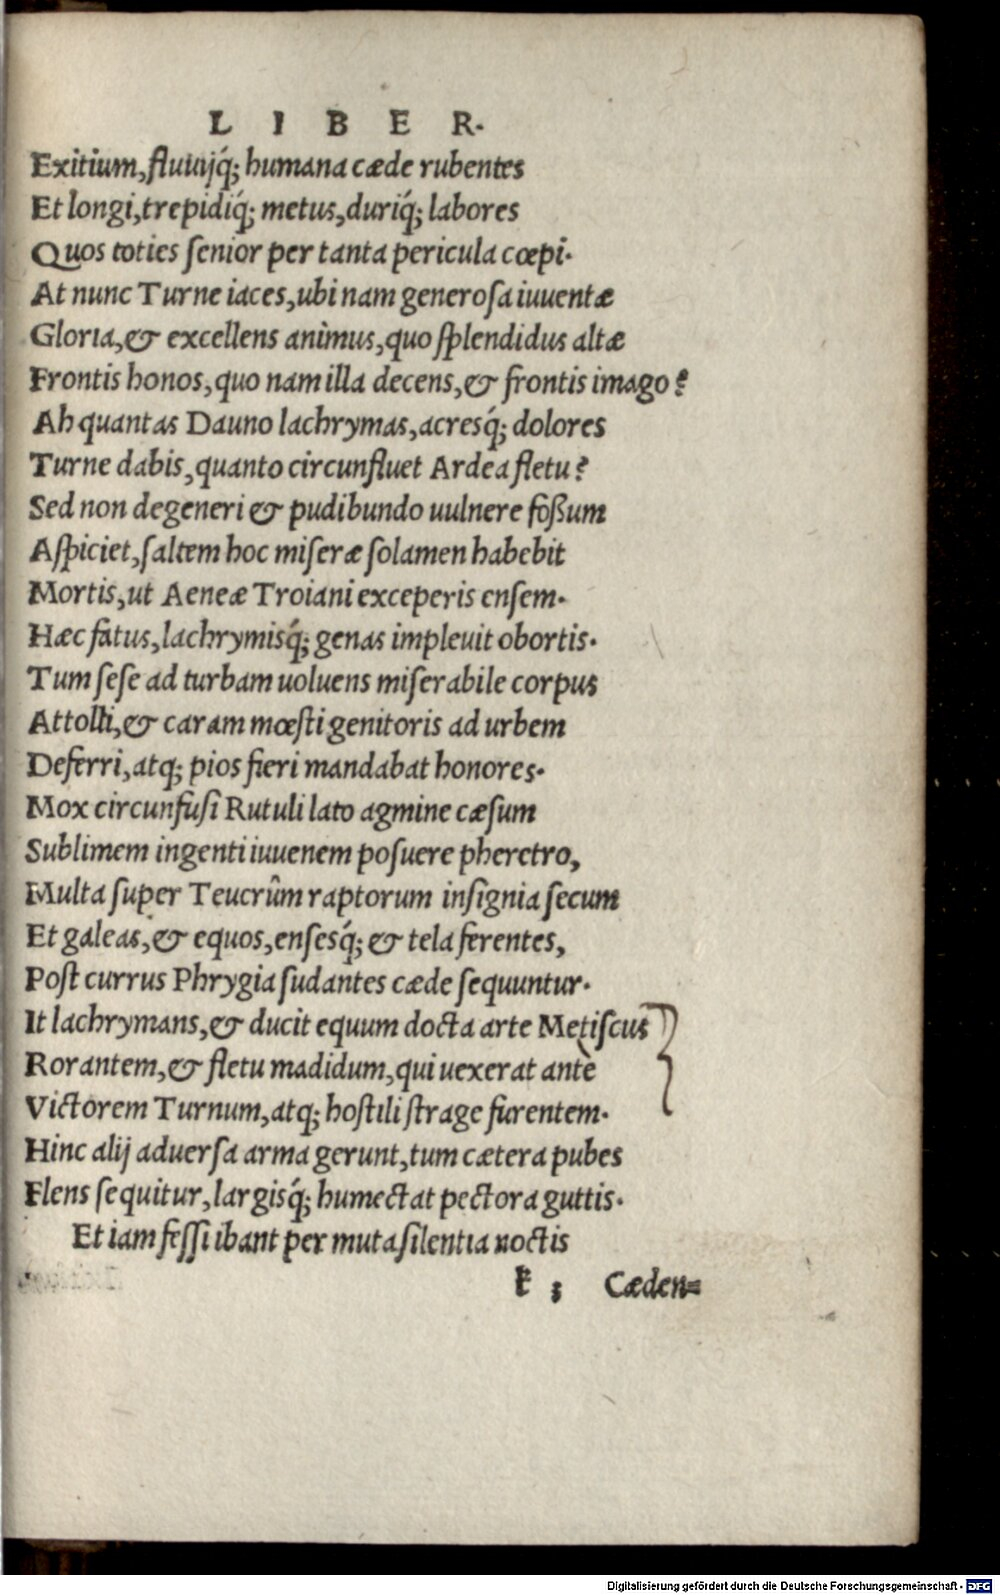 L I B E R.
Exitium, fluuijq́; humana cæde rubentes
Et longi, trepidiq́; metus, duriq́; labores
Quos toties ſenior per tanta pericula cœpi.
At nunc Turne iaces, ubi nam generoſa iuuentæ
Gloria, & excellens animus, quo ſplendidus altæ
Frontis honos, quo nam illa decens, & frontis imago?
Ah quantas Dauno lachrymas, acresq́; dolores
Turne dabis, quanto circunfluet Ardea fletu?
Sed non degeneri & pudibundo uulnere foßum
Aſpiciet, ſaltem hoc miſeræ ſolamen habebit
Mortis, ut Aeneæ Troiani exceperis enſem.
Hæc fatus, lachrymisq́; genas impleuit obortis.
Tum ſeſe ad turbam uoluens miſerabile corpus
Attolli, & caram mœſti genitoris ad urbem
Deferri, atq; pios fieri mandabat honores.
Mox circunfuſi Rutuli lato agmine cæſum
Sublimem ingenti iuuenem poſuere pheretro,
Multa ſuper Teucrûm raptorum inſignia ſecum
Et galeas, & equos, enſesq́; & tela ferentes,
Poſt currus Phrygia ſudantes cæde ſequuntur.
It lachrymans, & ducit equum docta arte Metiſcus
Rorantem, & fletu madidum, qui uexerat antè
Victorem Turnum, atq; hoſtili ſtrage furentem.
Hinc alij aduerſa arma gerunt, tum cætera pubes
Flens ſequitur, largisq́; humectat pectora guttis.
Et iam feſſi ibant per muta ſilentia noctis
k 3 Cæden=
Digitalisierung gefördert durch die Deutsche Forschungsgemeinschaft - DFG